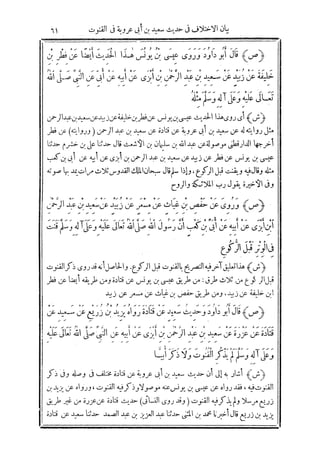 بيان الاختلاف فى حديث سعيد بن أبى عروبة فى القنوت ٦١
﴿ص﴾ قَالَ أَبُو دَاوُدَ وَرَوَى عِيسَى بْنُ يُونُسَ هَذَا الْحَدِيثَ أَيْضًا عَنْ فِطْرِ بْنِ
خَلِيفَةَ عَنْ زُبَيْدٍ عَنْ سَعِيدِ بْنِ عَبْدِ الرَّحْمَنِ بْنِ أَبْزَى عَنْ أَبِيهِ عَنْ أُبَىٍّ عَنِ النَّبِىِّ صَلَّى اللهُ
تَعَالَى عَلَيْهِ وَعَلَى آلِهِ وَسَلَّمَ مِثْلَهُ
﴿ش﴾ أى روى هذا الحديث عيسى بن يونس عن فطر بن خليفة عن زبيد عن سعيد بن عبد الرحمن
مثل روايته له عن سعيد بن أبى عروبة عن قتادة عن سعيد بن عبد الرحمن ﴿وروايته﴾ عن فطر
أخرجها الدارقطنى موصولة عن عبد الله بن سليمان بن الأشعث قال حدثنا على بن خشرم حدثنا
عيسى بن يونس عن فطر عن زبيد عن سعيد بن عبد الرحمن بن أبزى عن أبيه عن أبى بن كعب
مثله وقال فيه ويقنت قبل الركوع، وإذا سلم قال سبحان الملك القدوس ثلاث مرات يمد بها صوته
وفى الأخيرة يقول رب الملائكة والروح
﴿ص﴾ وَرُوِىَ عَنْ حَفْصِ بْنِ غِيَاثٍ عَنْ مِسْعَرٍ عَنْ زُبَيْدٍ عَنْ سَعِيدِ بْنِ عَبْدِ الرَّحْمَنِ
ابْنِ أَبْزَى عَنْ أَبِيهِ عَنْ أُبَىِّ بْنِ كَعْبٍ أَنَّ رَسُولَ اللهِ صَلَّى اللهُ تَعَالَى عَلَيْهِ وَعَلَى آلِهِ وَسَلَّمَ قَنَتَ
فِى الْوِتْرِ قَبْلَ الرُّكُوعِ
﴿ش﴾ هذا تعليق آخر فيه التصريح بالقنوت قبل الركوع. والحاصل أنه قد روى ذكر القنوت
قبل الركوع من ثلاث طرق: من طريق عيسى بن يونس عن قتادة ومن طريقه أيضا عن فطر
ابن خليفة عن زبيد. ومن طريق حفص بن غياث عن مسعر عن زبيد
﴿ص﴾ قَالَ أَبُو دَاوُدَ وَحَدِيثُ سَعِيدٍ عَنْ قَتَادَةَ رَوَاهُ يَزِيدُ بْنُ زُرَيْعٍ عَنْ سَعِيدٍ عَنْ
قَتَادَةَ عَنْ عَزْرَةَ عَنْ سَعِيدِ بْنِ عَبْدِ الرَّحْمَنِ بْنِ أَبْزَى عَنْ أَبِيهِ عَنِ النَّبِىِّ صَلَّى اللهُ تَعَالَى عَلَيْهِ
وَعَلَى آلِهِ وَسَلَّمَ لَمْ يَذْكُرِ الْقُنُوتَ وَلَا ذَكَرَ أُبَيًّا
﴿ش﴾ أشار به إلى أن حديث سعيد بن أبى عروبة عن قتادة مختلف فى وصله وفى ذكر
القنوت فيه، فقد رواه عن عيسى بن يونس عنه موصولا وذكر فيه القنوت، ورواه عن يزيد بن
زريع مرسلا ولم يذكر فيه القنوت ﴿وقد روى النسائى﴾ حديث قتادة عن عزرة من غير طريق
يزيد بن زريع قال أخبرنا محمد بن المثنى حدثنا عبد العزيز بن عبد الصمد حدثنا سعيد عن قتادة